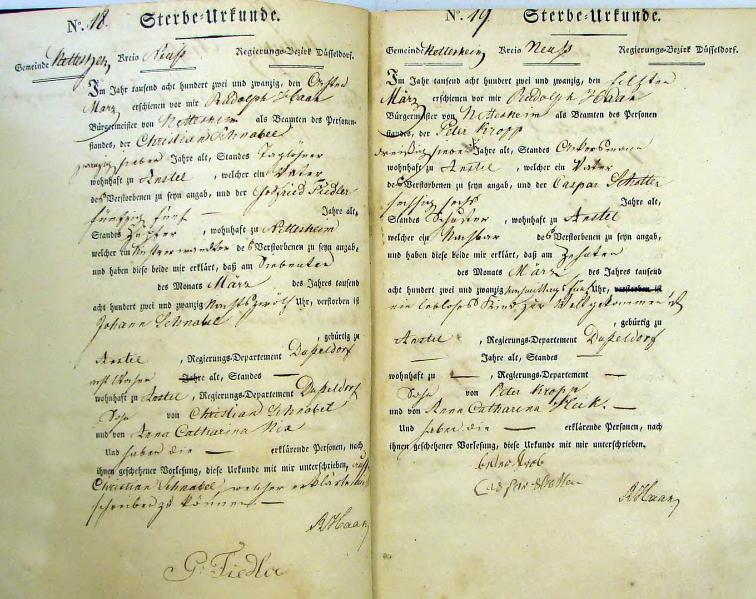 No. 18. Sterbe-Urkunde.
Gemeinde Nettesheim Kreis Neuss Regierungs-Bezirk Düsseldorf.
Im Jahr tausend acht hundert zwei und zwanzig, den
März erschienen vor mir Rudolph Haan
Bürgermeister von Nettesheim als Beamten des Personen-
standes, der Christian Schnabel
zwanzig sieben Jahre alt, Standes Taglöhner
wohnhaft zu Anstel, welcher ein Vater
des Verstorbenen zu seyn angab, und der Gotfried Fiedler
fünfzig fünf — Jahre alt,
Standes, wohnhaft zu Nettesheim
welcher ein des Verstorbenen zu seyn angab,
und haben diese beide mir erklärt, daß am Siebenten
des Monats März des Jahres tausend
acht hundert zwei und zwanzig Nachts zwölf Uhr, verstorben ist
Johann Schnabel
, gebürtig zu
Anstel, Regierungs-Departement Dusseldorf
acht Wochen Jahre alt, Standes —
wohnhaft zu Anstel, Regierungs-Departement Dusseldorf
Sohn von Christian Schnabel
und von Anna Catharina Nix
Und haben die — erklärende Personen, nach
ihnen geschehener Vorlesung, diese Urkunde mit mir unterschrieben,
Christian Schnabel, welcher erklärte
schreiben zu können —
R Haan
G: Fiedler
No. 19 Sterbe-Urkunde.
Gemeinde Nettesheim Kreis Neuss Regierungs-Bezirk Düsseldorf.
Im Jahr tausend acht hundert zwei und zwanzig, den
März erschienen vor mir Rudolph Haan
Bürgermeister von Nettesheim als Beamten des Personen
standes, der Peter Kropp
dreißig Jahre alt, Standes Ackersmann
wohnhaft zu Anstel, welcher ein Vater
des Verstorbenen zu seyn angab, und der Caspar
sechszig sechs Jahre alt,
Standes Schuster, wohnhaft zu Anstel
welcher ein Nachbar des Verstorbenen zu seyn angab,
und haben diese beide mir erklärt, daß am Zehnten
des Monats März des Jahres tausend
acht hundert zwei und zwanzig Nachmittags fünf Uhr, verstorben ist
ein lebloses Kind zur Welt gekommen ist
, gebürtig zu
Anstel, Regierungs-Departement Dusseldorf
— Jahre alt, Standes —
wohnhaft zu —, Regierungs-Departement —
Sohn von Peter Kropp
und von Anna Catharina —
Und haben die — erklärende Personen, nach
ihnen geschehener Vorlesung, diese Urkunde mit mir unterschrieben.
R Haan